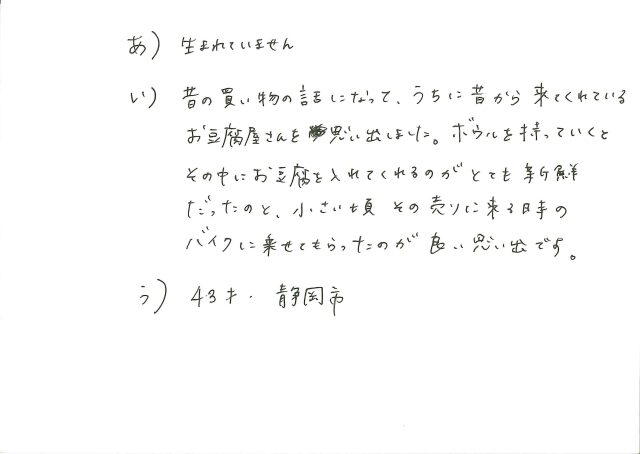 あ) 生まれていません
い) 昔の買い物の話になって、うちに昔から来てくれている
お豆腐屋さんを思い出しました。ボウルを持っていくと
その中にお豆腐を入れてくれるのがとても新鮮
だったのと、小さい頃その売りに来る時の
バイクに乗せてもらったのが良い思い出です。
う) 43才・静岡市